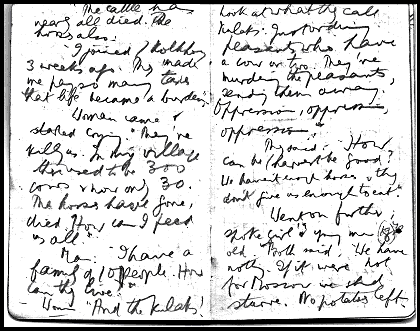 The cattle has
nearly all died. The
horses also.
"I joined / Kolkhoz
3 weeks ago. They made
me pay so many taxes
that life became a burden."
Woman came &
started crying "They're
killing us. In my village
there used to be 300
cows & now only 30.
The horses have gone,
died. How can I feed
us all"
Man: "I have a
family of 10 people. How
can they live."
Woman "And the kulaks!
Look at what they call
kulaks: Just ordinary
peasants, who have
a cow or two. They're
murdering the peasants,
sending them away.
Oppression, oppression,
oppression."
They said: "How
can be harvest be good?
We haven't enough horses & they
don't give us enough to eat."
Went on further;
spoke girl & young man
old. Both said, "We have
nothing. If it were not
for Moscow we should
starve. No potatoes left.